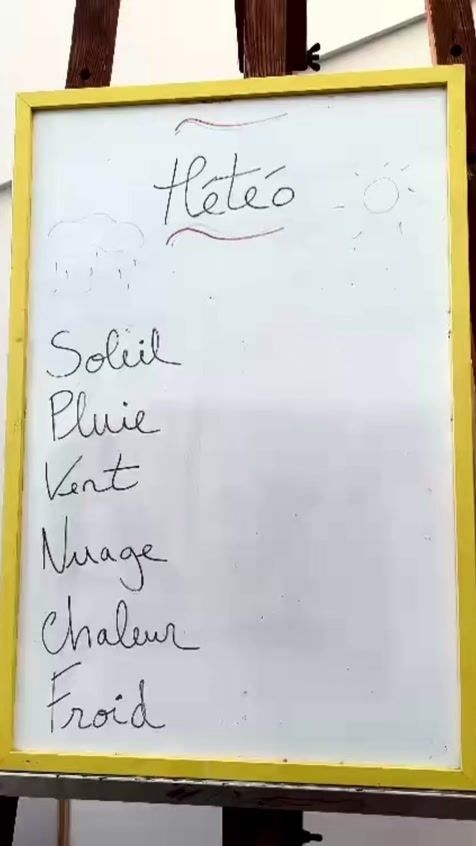 Météo
Soleil
Pluie
Vent
Nuage
Chaleur
Froid